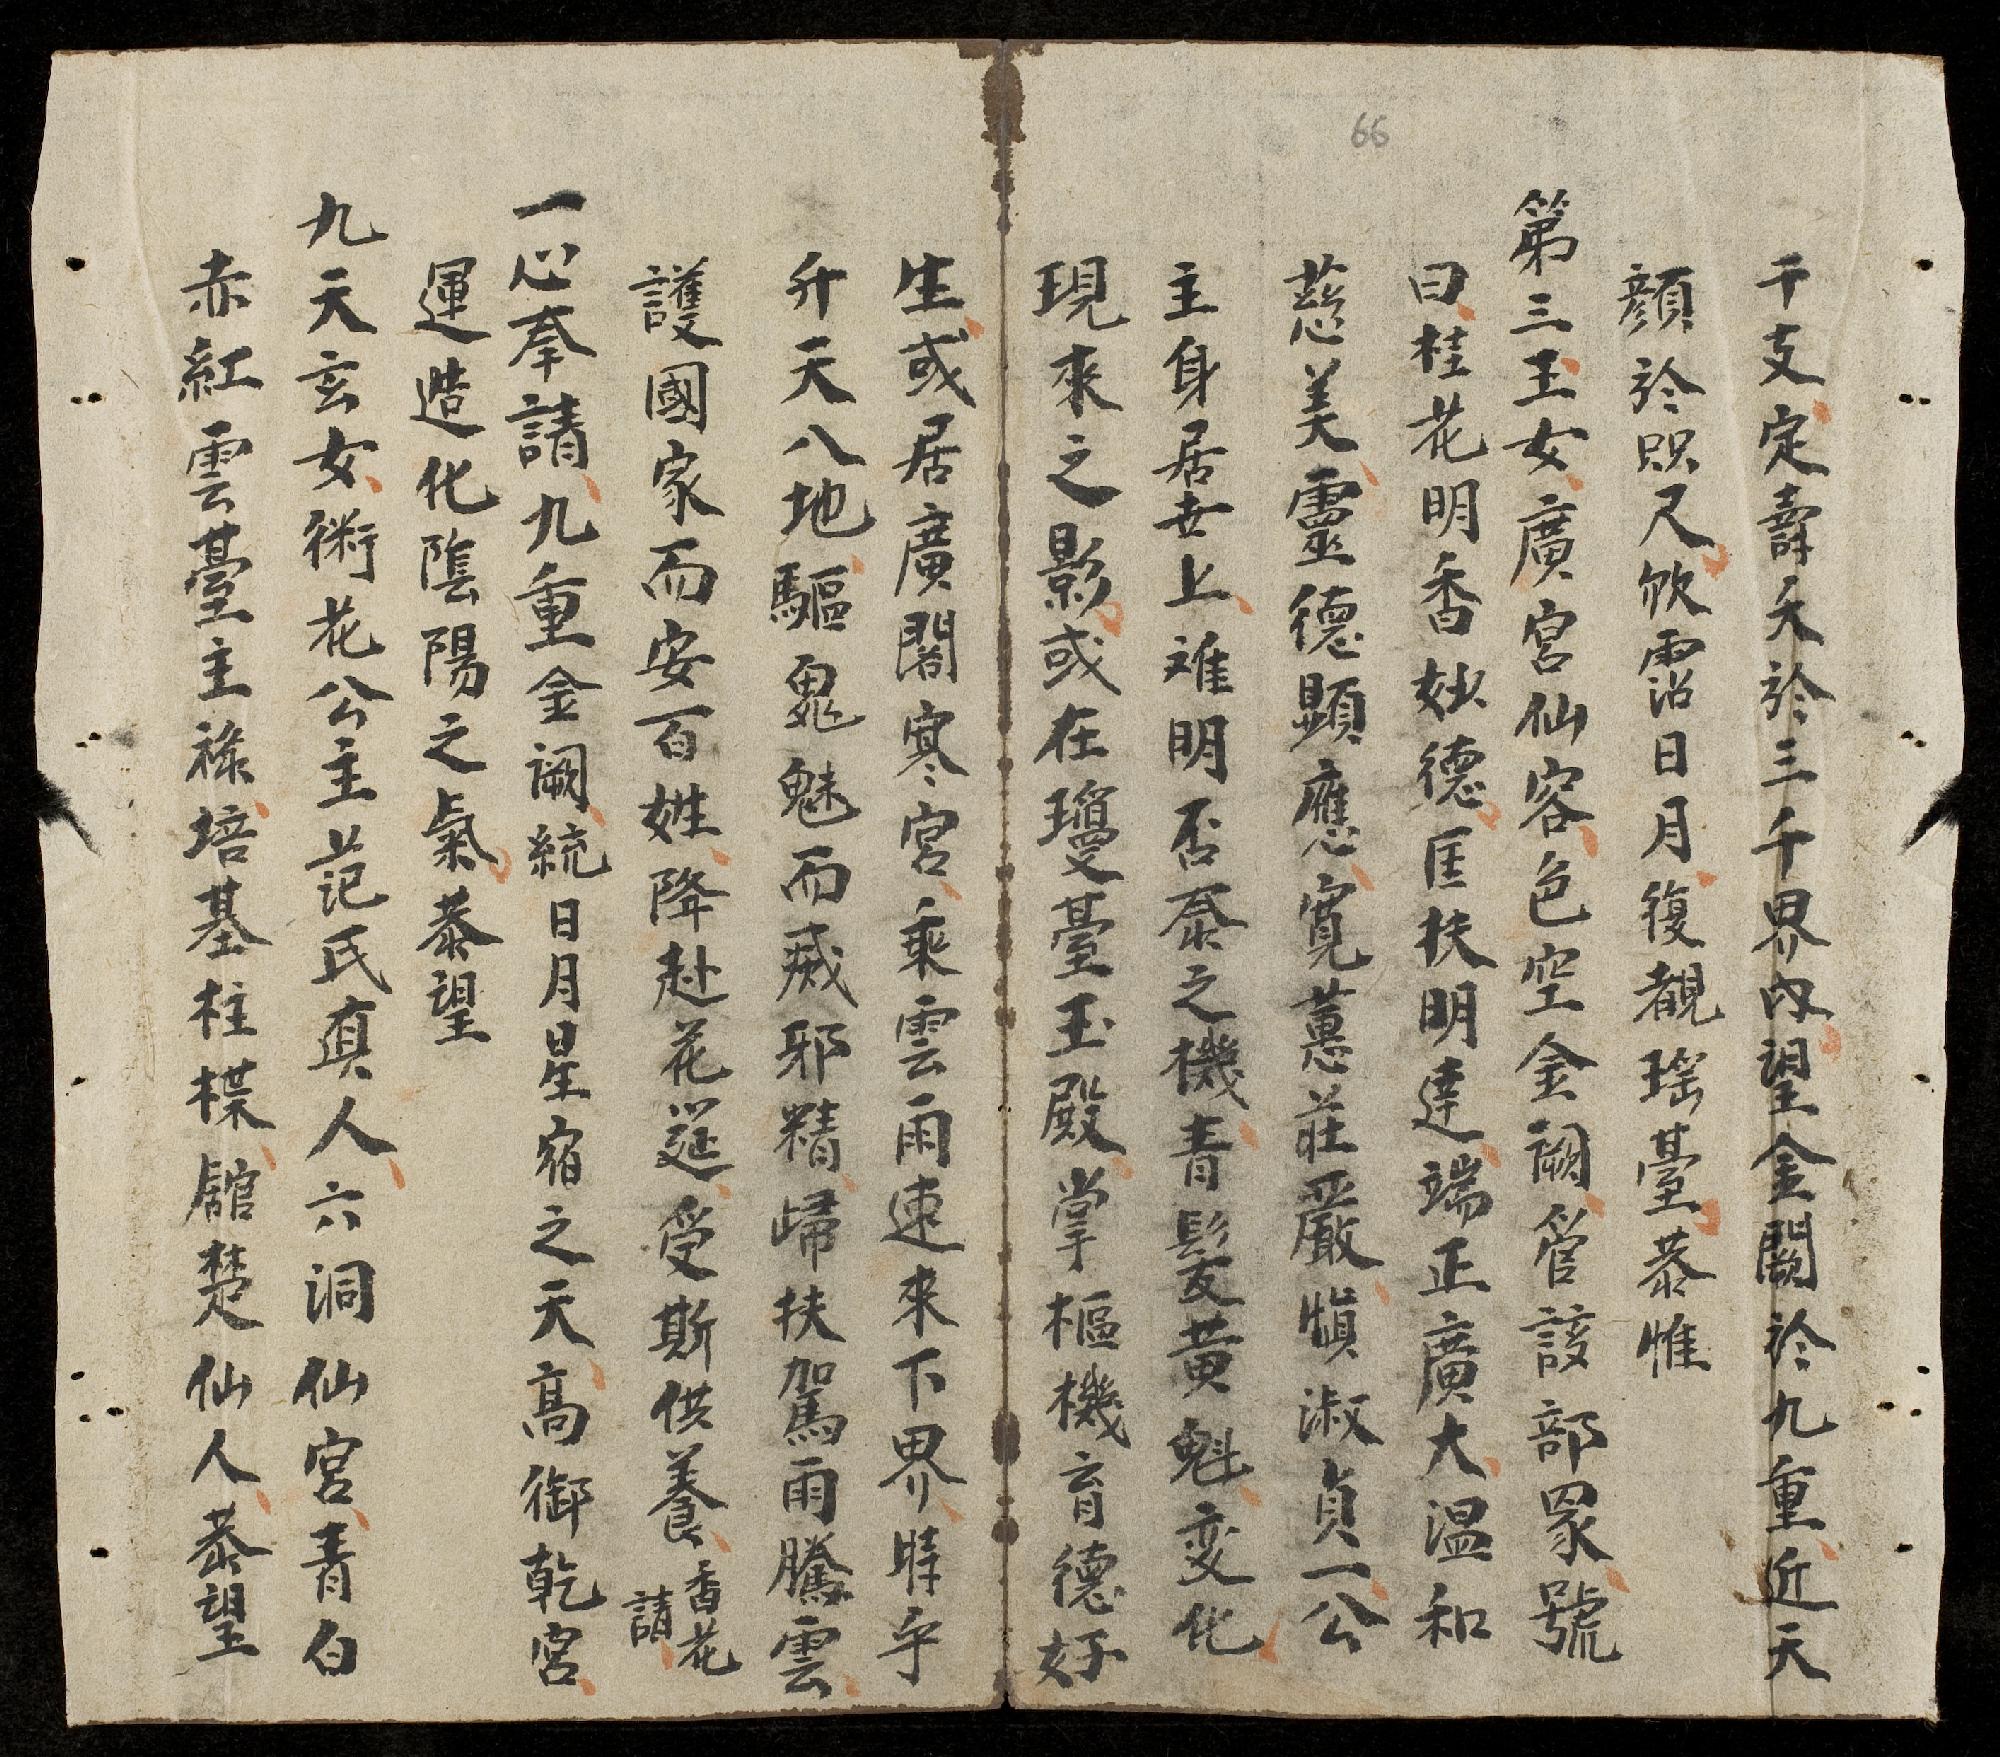 66
干支定壽夭於三千界內望金闕於九重近天
顏於咫尺欣霑日月復覩瑤臺恭惟
第三玉女廣宮仙容色空金闕管該部眾號
曰桂花明香妙德匡扶明達端正廣大温和
慈美靈德顯應寬蕙莊嚴慎淑貞一公
主身居世上难明否泰之機青髮黃魁变化
現來之影或在瓊臺玉殿掌樞機育德好
生或居廣闊寒宮乘雲雨速來下界時乎
升天八地驅鬼魅而威邪精歸扶駕雨騰雲
護國家而安百姓降赴花筵受斯供養香花請
一心奉請九重金闕統日月星宿之天高御乾宮
運造化陰陽之氣恭望
九天玄女術花公主范氏真人六洞仙宮青白
赤紅雲臺主祿培基柱楪舘楚仙人恭望